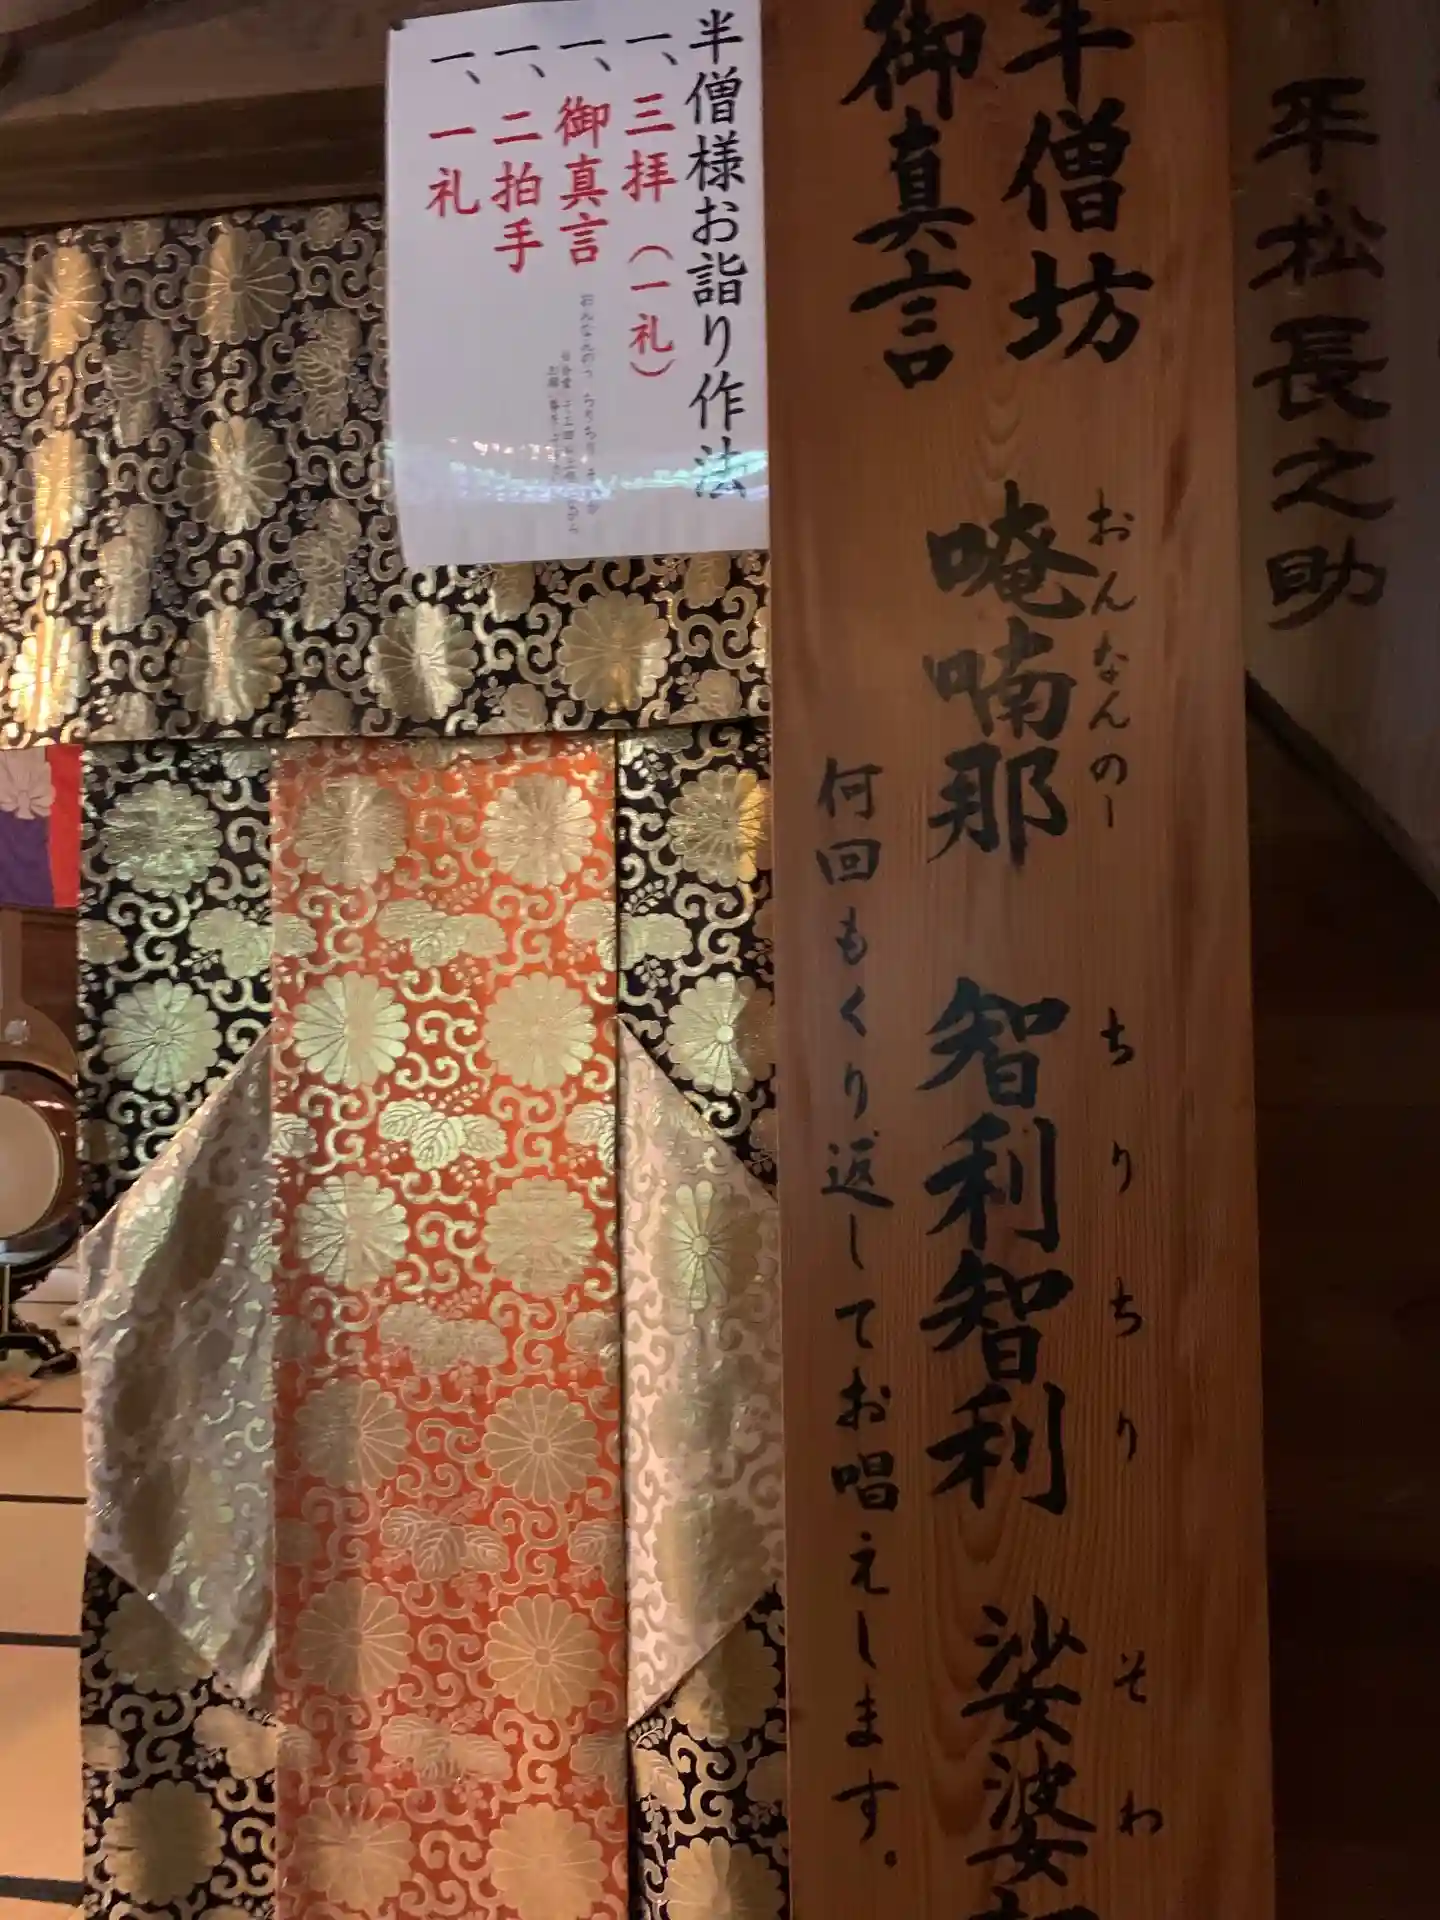 平松長之助
半僧坊
御真言
おんなんのー ちりちり そわ
唵喃那 智利智利 娑婆
何回もくり返してお唱えします。
半僧様お詣り作法
一、三拝（一礼）
一、御真言
一、二拍手
一、一礼